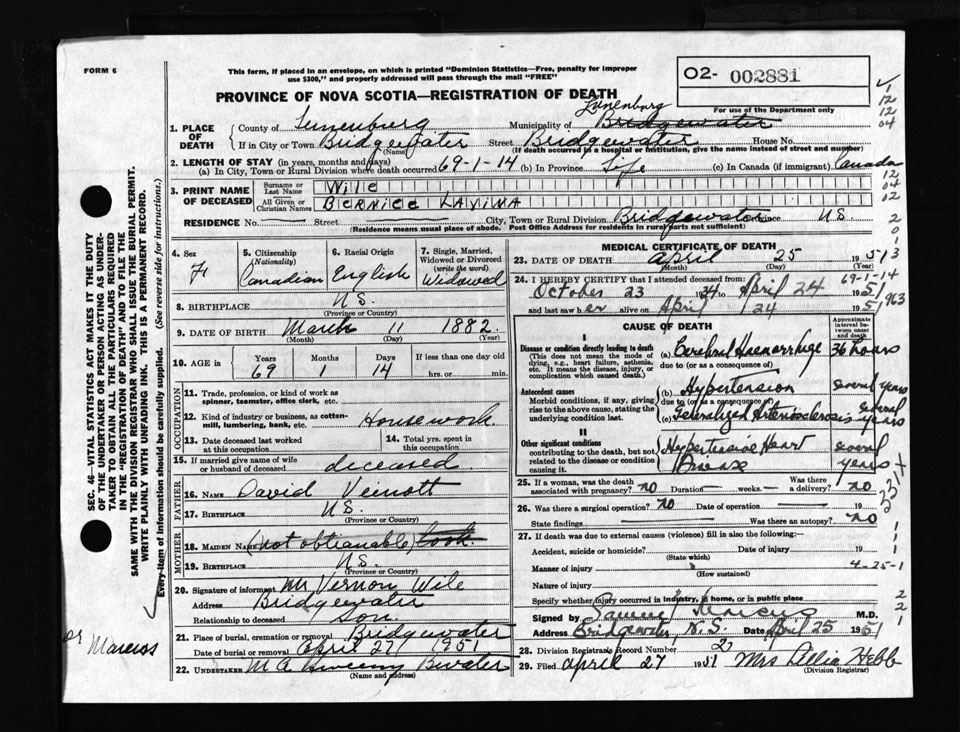 FORM 6
This form, if placed in an envelope, on which is printed "Dominion Statistics—Free, penalty for improper
use $300," and properly addressed will pass through the mail "FREE"
O2- 002881
PROVINCE OF NOVA SCOTIA—REGISTRATION OF DEATH
For use of the Department only
Lunenburg
1. PLACE OF DEATH
County of Lunenburg Municipality of Bridgewater
If in City or Town Bridgewater Street Bridgewater House No.
(Name) (If death occurred in a hospital or institution, give the name instead of street and number)
2. LENGTH OF STAY (in years, months and days)
(a) In City, Town or Rural Division where death occurred 69-1-14 (b) In Province Life (c) In Canada (if immigrant) Canada
3. PRINT NAME OF DECEASED
Surname or Last Name Wile
All Given or Christian Names BERNICE LAVINA
RESIDENCE No. Street City, Town or Rural Division Bridgewater Province N.S.
(Residence means usual place of abode. Post Office Address for residents in rural parts not sufficient)
4. Sex F
5. Citizenship (Nationality) Canadian
6. Racial Origin English
7. Single, Married, Widowed or Divorced (write the word) Widowed
8. BIRTHPLACE N.S.
(Province or Country)
9. DATE OF BIRTH March 11 1882
(Month) (Day) (Year)
10. AGE in Years Months Days If less than one day old
69 1 14 hrs. or min.
OCCUPATION
11. Trade, profession, or kind of work as spinner, teamster, office clerk, etc.
12. Kind of industry or business, as cotton-mill, lumbering, bank, etc. Housework
13. Date deceased last worked at this occupation
14. Total yrs. spent in this occupation
15. If married give name of wife or husband of deceased deceased
FATHER
16. NAME David Veinott
17. BIRTHPLACE N.S.
(Province or Country)
MOTHER
18. MAIDEN NAME (not obtianable)
19. BIRTHPLACE N.S.
(Province or Country)
20. Signature of informant Mr Vernon Wile
Address Bridgewater
Relationship to deceased Son
21. Place of burial, cremation or removal Bridgewater
Date of burial or removal April 27 1951
22. UNDERTAKER B'water
(Name and address)
MEDICAL CERTIFICATE OF DEATH
23. DATE OF DEATH April 25 1951
(Month) (Day) (Year)
24. I HEREBY CERTIFY that I attended deceased from
October 23 19 to April 24 1951
and last saw her alive on April 24 1951
69-1-14
963
CAUSE OF DEATH
Approximate interval between onset and death
I
Disease or condition directly leading to death
(This does not mean the mode of dying, e.g., heart failure, asthenia, etc. It means the disease, injury, or complication which caused death.)
(a) Cerebral Haemorrhage 36 hours
due to (or as a consequence)
Antecedent causes
Morbid conditions, if any, giving rise to the above cause, stating the underlying condition last.
(b) Hypertension several years
due to (or as a consequence of)
(c) Generalized Arteriosclerosis several years
II
Other significant conditions contributing to the death, but not related to the disease or condition causing it.
Hypertensive Heart Disease several years
25. If a woman, was the death associated with pregnancy? no Duration weeks. Was there a delivery? no
26. Was there a surgical operation? no Date of operation 19
State findings Was there an autopsy? no
27. If death was due to external causes (violence) fill in also the following:—
Accident, suicide or homicide? Date of injury 19
(State which)
Manner of injury 4-25-1
(How sustained)
Nature of injury
Specify whether injury occurred in industry, in home, or in public place
Signed by Marcus M.D.
Address Bridgewater, N.S. Date April 25 1951
28. Division Registrar's Record Number 2
29. Filed April 27 1951 Mrs Hebb
(Division Registrar)
SEC. 46—VITAL STATISTICS ACT MAKES IT THE DUTY
OF THE UNDERTAKER OR PERSON ACTING AS UNDER-
TAKER TO OBTAIN ALL THE PARTICULARS REQUIRED
IN THE "REGISTRATION OF DEATH" AND TO FILE THE
SAME WITH THE DIVISION REGISTRAR WHO SHALL ISSUE THE BURIAL PERMIT.
WRITE PLAINLY WITH UNFADING INK. THIS IS A PERMANENT RECORD.
Every item of information should be carefully supplied. (See reverse side for instructions.)
Dr Marcus